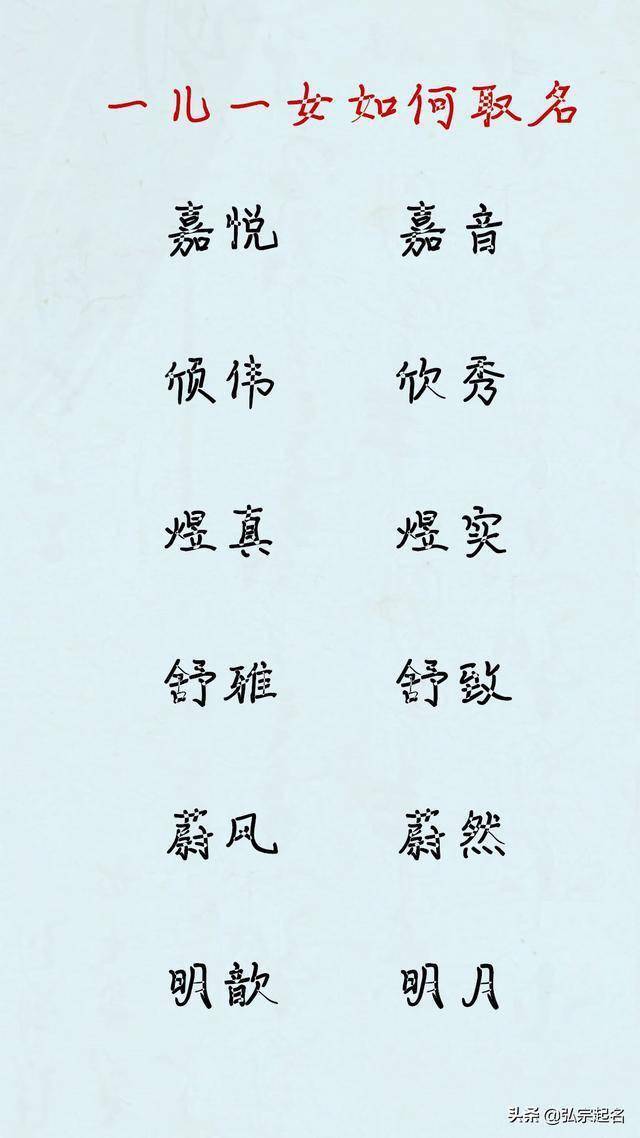 一儿一女如何取名
嘉悦 嘉音
颀伟 欣秀
煜真 煜实
舒雅 舒致
蔚风 蔚然
明歆 明月
头条 @弘宗起名